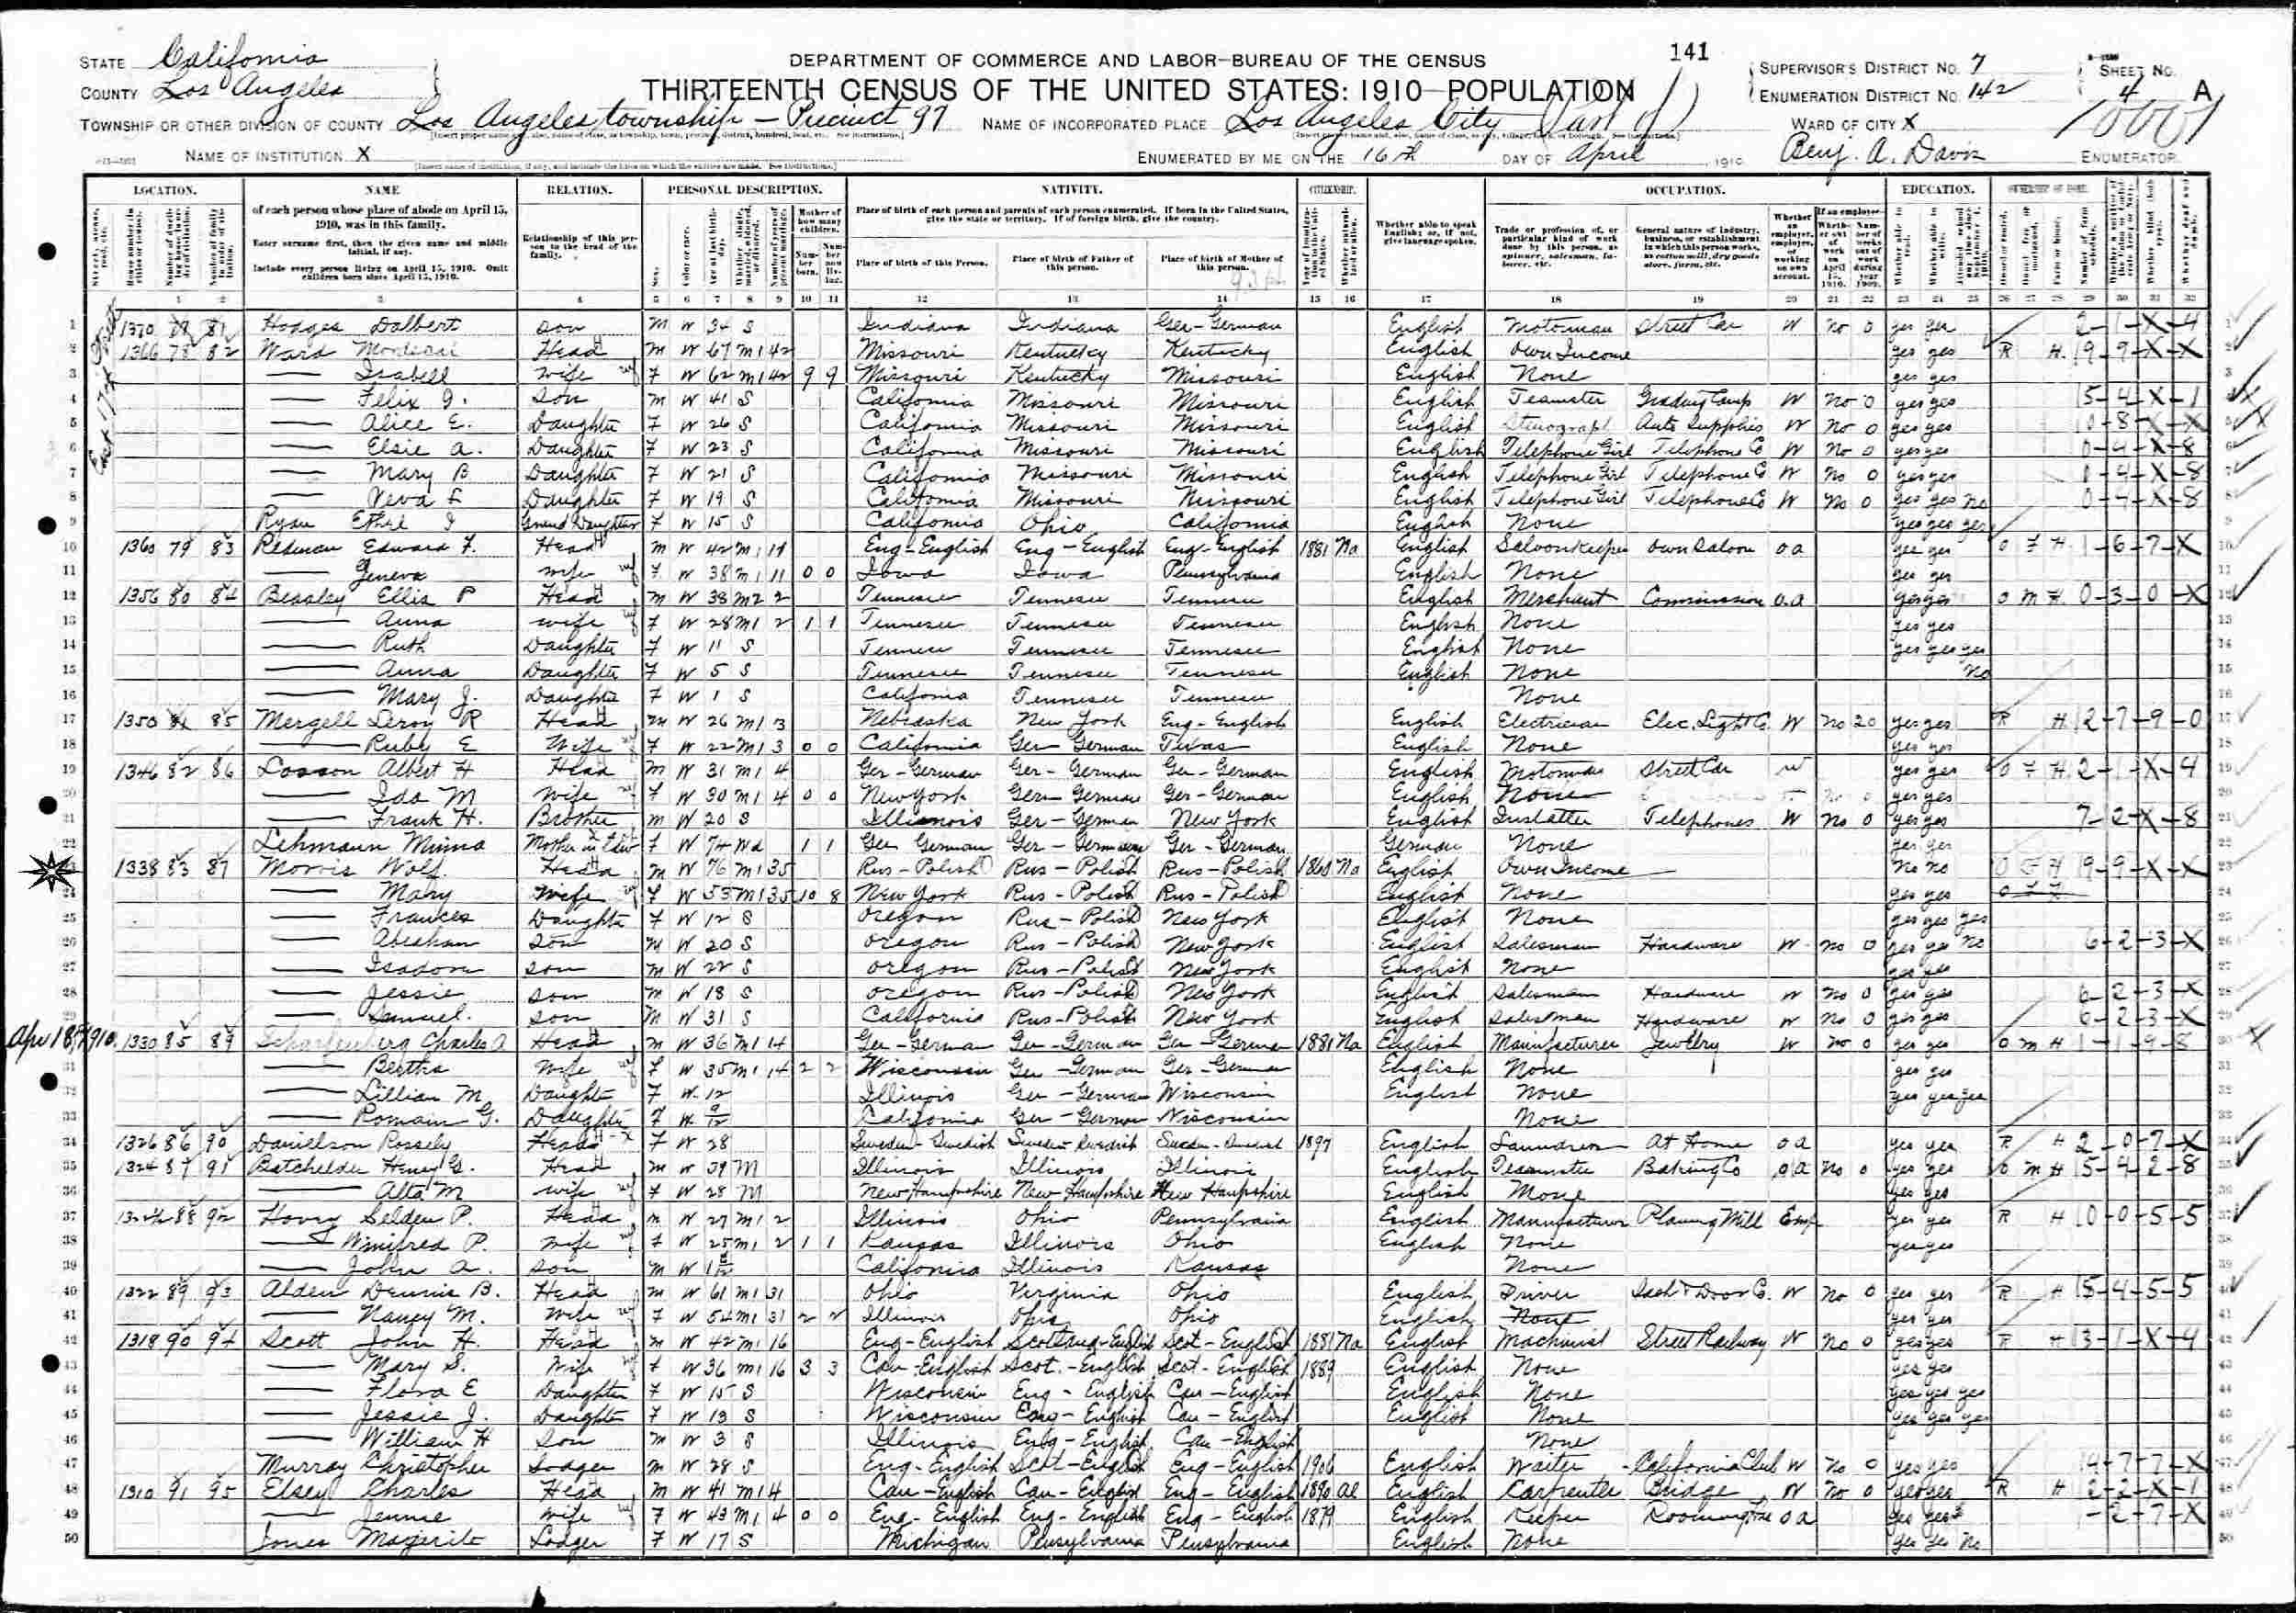 141
STATE California
COUNTY Los Angeles
DEPARTMENT OF COMMERCE AND LABOR—BUREAU OF THE CENSUS
THIRTEENTH CENSUS OF THE UNITED STATES: 1910—POPULATION
SUPERVISOR'S DISTRICT NO. 7
ENUMERATION DISTRICT NO. 142
SHEET NO. 4 A
TOWNSHIP OR OTHER DIVISION OF COUNTY Los Angeles township — Precinct 97
NAME OF INCORPORATED PLACE Los Angeles City (Part of)
WARD OF CITY X
NAME OF INSTITUTION X
ENUMERATED BY ME ON THE 16th DAY OF April, 1910.
Benj. A. Davis ENUMERATOR
LOCATION. NAME RELATION. PERSONAL DESCRIPTION. NATIVITY. CITIZENSHIP. OCCUPATION. EDUCATION. OWNERSHIP OF HOME.
of each person whose place of abode on April 15, 1910, was in this family.
Enter surname first, then the given name and middle initial, if any.
Include every person living on April 15, 1910. Omit children born since April 15, 1910.
Relationship of this person to the head of the family.
Mother of how many children.
Place of birth of each person and parents of each person enumerated. If born in the United States, give the state or territory. If of foreign birth, give the country.
Place of birth of this Person. Place of birth of Father of this person. Place of birth of Mother of this person.
Whether able to speak English; or, if not, give language spoken.
1 2 3 4 5 6 7 8 9 10 11 12 13 14 15 16 17 18 19 20 21 22 23 24 25 26 27 28 29 30 31 32
1 1370 81 Hodges Dalbert Son M W 34 S Indiana Indiana Ger-German English Motorman Street Car W No 0 yes yes 2-1-X-4
2 1366 78 82 Ward Head M W 67 M1 42 Missouri Kentucky Kentucky English Own Income yes yes R H 9-9-X-X
3 — Isabell Wife F W 62 M1 42 9 9 Missouri Kentucky Missouri English None yes yes
4 — Felix Son M W 41 S California Missouri Missouri English Teamster Grading Camp W No 0 yes yes 5-4-X-1
5 — Alice E. Daughter F W 26 S California Missouri Missouri English Stenograph Auto Supplies W No 0 yes yes 0-8-X-X
6 — Elsie A. Daughter F W 23 S California Missouri Missouri English Telephone Girl Telephone Co W No 0 yes yes 0-4-X-8
7 — Mary B Daughter F W 21 S California Missouri Missouri English Telephone Girl Telephone Co W No 0 yes yes 0-4-X-8
8 — Neva L Daughter F W 19 S California Missouri Missouri English Telephone Girl Telephone Co W No 0 yes yes No 0-4-X-8
9 Ryan Ethel I Grand Daughter F W 15 S California Ohio California English None yes yes yes
10 1360 79 83 Redman Edward F. Head M W 42 M1 11 Eng-English Eng-English Eng-English 1881 Na English Saloonkeeper Own Saloon OA yes yes O F H 1-6-7-X
11 — Geneva Wife F W 38 M1 11 0 0 Iowa Iowa Pennsylvania English None yes yes
12 1356 80 84 Beasley Ellis P Head M W 38 M2 2 Tennessee Tennessee Tennessee English Merchant Commission OA yes yes O M H 0-3-0-X
13 — Anna Wife F W 28 M1 2 1 1 Tennessee Tennessee Tennessee English None yes yes
14 — Ruth Daughter F W 11 S Tennessee Tennessee Tennessee English None yes yes yes
15 — Anna Daughter F W 5 S Tennessee Tennessee Tennessee English None No
16 — Mary J. Daughter F W 1 S California Tennessee Tennessee None
17 1350 81 85 Mergell Leroy R Head M W 26 M1 3 Nebraska New York Eng-English English Electrician Elec. Light Co. W No 20 yes yes R H 2-7-9-0
18 — Ruby E Wife F W 22 M1 3 0 0 California Ger German Texas English None yes yes
19 1346 82 86 Losson Albert H Head M W 31 M1 4 Ger-German Ger-German Ger-German English Motorman Street Car W yes yes O F H 2-1-X-4
20 — Ida M Wife F W 30 M1 4 0 0 New York Ger-German Ger-German English None yes yes
21 — Frank H. Brother M W 20 S Illinois Ger-German New York English Installer Telephones W No 0 yes yes 7-2-X-8
22 Lehmann Minna Mother in Law F W 74 Wd 1 1 Ger German Ger-German Ger-German German None yes yes
23 1338 83 87 Morris Wolf Head M W 76 M1 35 Rus-Polish Rus-Polish Rus-Polish 1860 Na English Own Income No No O F H 9-9-X-X
24 — Mary Wife F W 53 M1 35 10 8 New York Rus-Polish Rus-Polish English None yes yes
25 — Frances Daughter F W 12 S Oregon Rus-Polish New York English None yes yes yes
26 — Abraham Son M W 20 S Oregon Rus-Polish New York English Salesman Hardware W No 0 yes yes No 6-2-3-X
27 — Isadore Son M W 22 S Oregon Rus-Polish New York English None yes yes
28 — Jessie Son M W 18 S Oregon Rus-Polish New York English Salesman Hardware W No 0 yes yes 6-2-3-X
29 — Samuel Son M W 31 S California Rus-Polish New York English Salesman Hardware W No 0 yes yes 6-2-3-X
30 Apr 18, 1910. 1330 85 89 Scharfenberg Charles A Head M W 36 M1 14 Ger-German Ger-German Ger-German 1881 Na English Manufacturer Jewelry W No 0 yes yes O M H 1-1-9-8
31 — Bertha Wife F W 35 M1 14 2 2 Wisconsin Ger-German Ger-German English None yes yes
32 — Lillian M Daughter F W 12 Illinois Ger-German Wisconsin English None yes yes yes
33 — Romain G. Daughter F W 9/12 California Ger-German Wisconsin None
34 1326 86 90 Danielson Rossely Head F W 28 Sweden-Swedish Sweden-Swedish Sweden-Swedish 1897 English Laundress At Home OA yes yes R H 2-0-7-X
35 1324 87 91 Batchelder Henry G. Head M W 39 M Illinois Illinois Illinois English Teamster Baking Co OA No 0 yes yes O M H 5-4-2-8
36 — Alta M Wife F W 28 M New Hampshire New Hampshire New Hampshire English None yes yes
37 88 92 Hovey Selden P. Head M W 27 M1 2 Illinois Ohio Pennsylvania English Manufacturer Planing Mill Emp yes yes R H 0-0-5-5
38 — Winifred P. Wife F W 25 M1 2 1 1 Kansas Illinois Ohio English None yes yes
39 — John A. Son M W California Illinois Kansas None
40 1322 89 93 Alden Dennis B. Head M W 61 M1 31 Ohio Virginia Ohio English Driver Sash & Door Co. W No 0 yes yes R H 5-4-5-5
41 — Nancy M. Wife F W 54 M1 31 2 2 Illinois Ohio Ohio English None yes yes
42 1318 90 94 Scott John H. Head M W 42 M1 16 Eng-English Scot-English 1881 Na English Machinist Street Railway W No 0 yes yes R H 3-1-X-4
43 — Mary S. Wife F W 36 M1 16 3 3 Can-English Scot.-English Scot-English 1889 English None yes yes
44 — Flora E Daughter F W 15 S Wisconsin Eng-English Can-English English None yes yes yes
45 — Jessie J. Daughter F W 13 S Wisconsin Eng-English Can-English English None yes yes yes
46 — William H Son M W 3 S Illinois Eng-English Can-English None
47 Murray Christopher Lodger M W 28 S Eng-English Scot-English Eng-English 1906 English Waiter California Club W No 0 yes yes 4-7-7-X
48 1310 91 95 Elsey Charles Head M W 41 M1 4 Can-English Can-English Eng-English 1890 Al English Carpenter Bridge W No 0 yes yes R H 2-2-X-1
49 — Jennie Wife F W 43 M1 4 0 0 Eng-English Eng-English Eng-English 1879 English Keeper Rooming Hse OA yes yes -2-7-X
50 Jones Magerite Lodger F W 17 S Michigan Pensylvania Pensylvania English None yes yes No